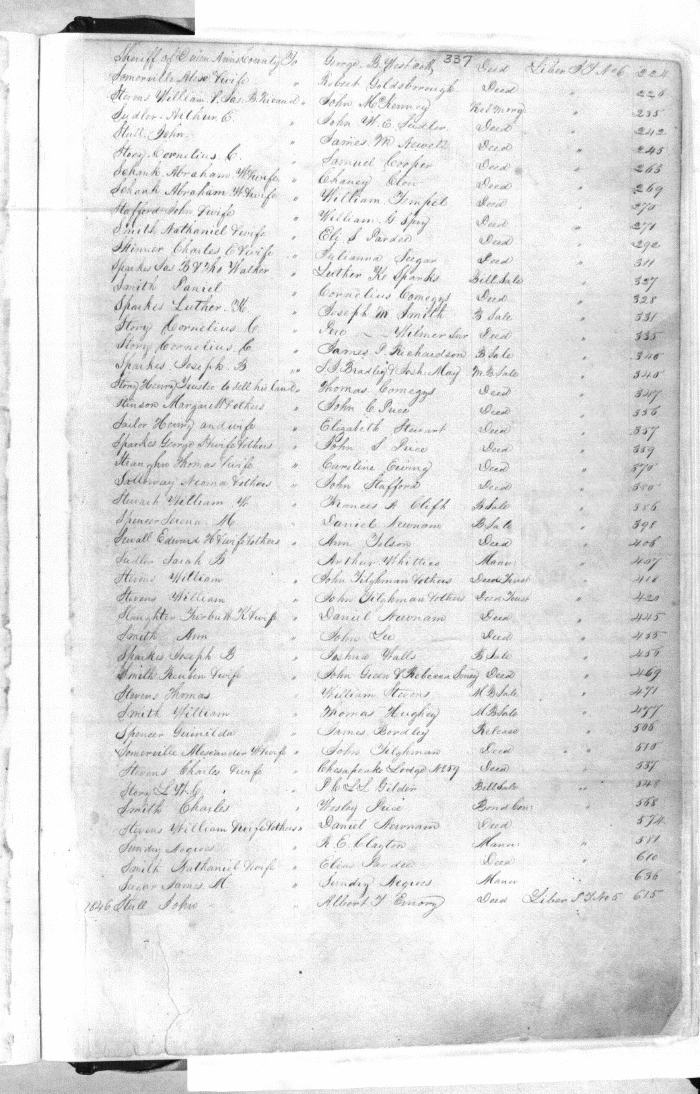 337
Sheriff of Queen Anns County To George B. Westcott Deed Liber S T No 6 224
Somerville Alex & wife " Robert Goldsborough Deed " 226
Stevens William P. Jas B. Ricaud " John McKenney Rel Morg " 235
Sudler Arthur E. " John W. E. Sudler Deed " 242
Stull John " James M Newell Deed " 245
Story Cornelius C. " Samuel Cooper Deed " 263
Schonk Abraham W & wife " Chaney Deed " 269
Schonk Abraham W & wife " William Deed 270
Stafford John & wife " William G Spry Deed " 271
Smith Nathaniel & wife " Eli S Pardee Deed " 292
Skinner Charles E & wife " Julianna Seegar Deed " 311
Sparkes Jas B & Walker " Luther K. Sparks Bill Sale " 327
Smith Daniel " Cornelius Comegys Deed " 328
Sparkes Luther. K " Joseph M Smith B Sale " 331
Story Cornelius C. " Pere Wilmer Deed " 335
Story Cornelius C " James P. Richardson B Sale " 340
Sparkes Joseph. B " Bradley & Josh. May M B Sale " 345
Story Henry Trustee to sell his land " Thomas Comegys Deed " 347
Stinson Margaret & others " John C Price Deed " 356
Sailor Henry and wife " Elizabeth Stewart Deed " 357
Sparkes George & wife & others " John S Price Deed " 359
Straughn Thomas & wife " Caroline Ewing Deed " 370
Solloway & others " John Stafford Deed " 380
Stewart William W. " Frances A Clift B Sale " 386
Spencer M " Daniel Newnam B Sale " 398
Sewall Edward H & wife & others " Ann Tilson Deed " 406
Sudler Sarah B " Arthur Manu " 407
Stevens William " John Tilghman & others Deed Trust " 410
Stevens William " John Tilghman & others Deed Trust " 420
Slaughter K & wife " Daniel Newnam Deed " 445
Smith Ann " John Lee Deed " 455
Sparkes Joseph B " Joshua Walls B Sale " 456
Smith Reuben & wife " John Green & Rebecca Deed " 469
Stevens Thomas " William Stevens M B Sale " 471
Smith William " Thomas Hughey M B Sale " 477
Spencer " James Bordley Release " 506
Somerville Alexander & wife " John Tilghman Deed " 510
Stevens Charles & wife " Chesapeake Lodge No 59 Deed " 537
Story L. W. G. " P. C. L. S. Gilder Bill Sale " 548
Smith Charles " Wesley Price Bond Con: " 568
Stevens William & wife & others " Daniel Newnam Deed 574
Sunday Negroes " R. E. Clayton Manu " 581
Smith Nathaniel & wife " Elias Pardee Deed " 610
James M " Sunday Negroes Manu " 636
1846 Stull John " Albert T Emory Deed Liber S T No 5 615